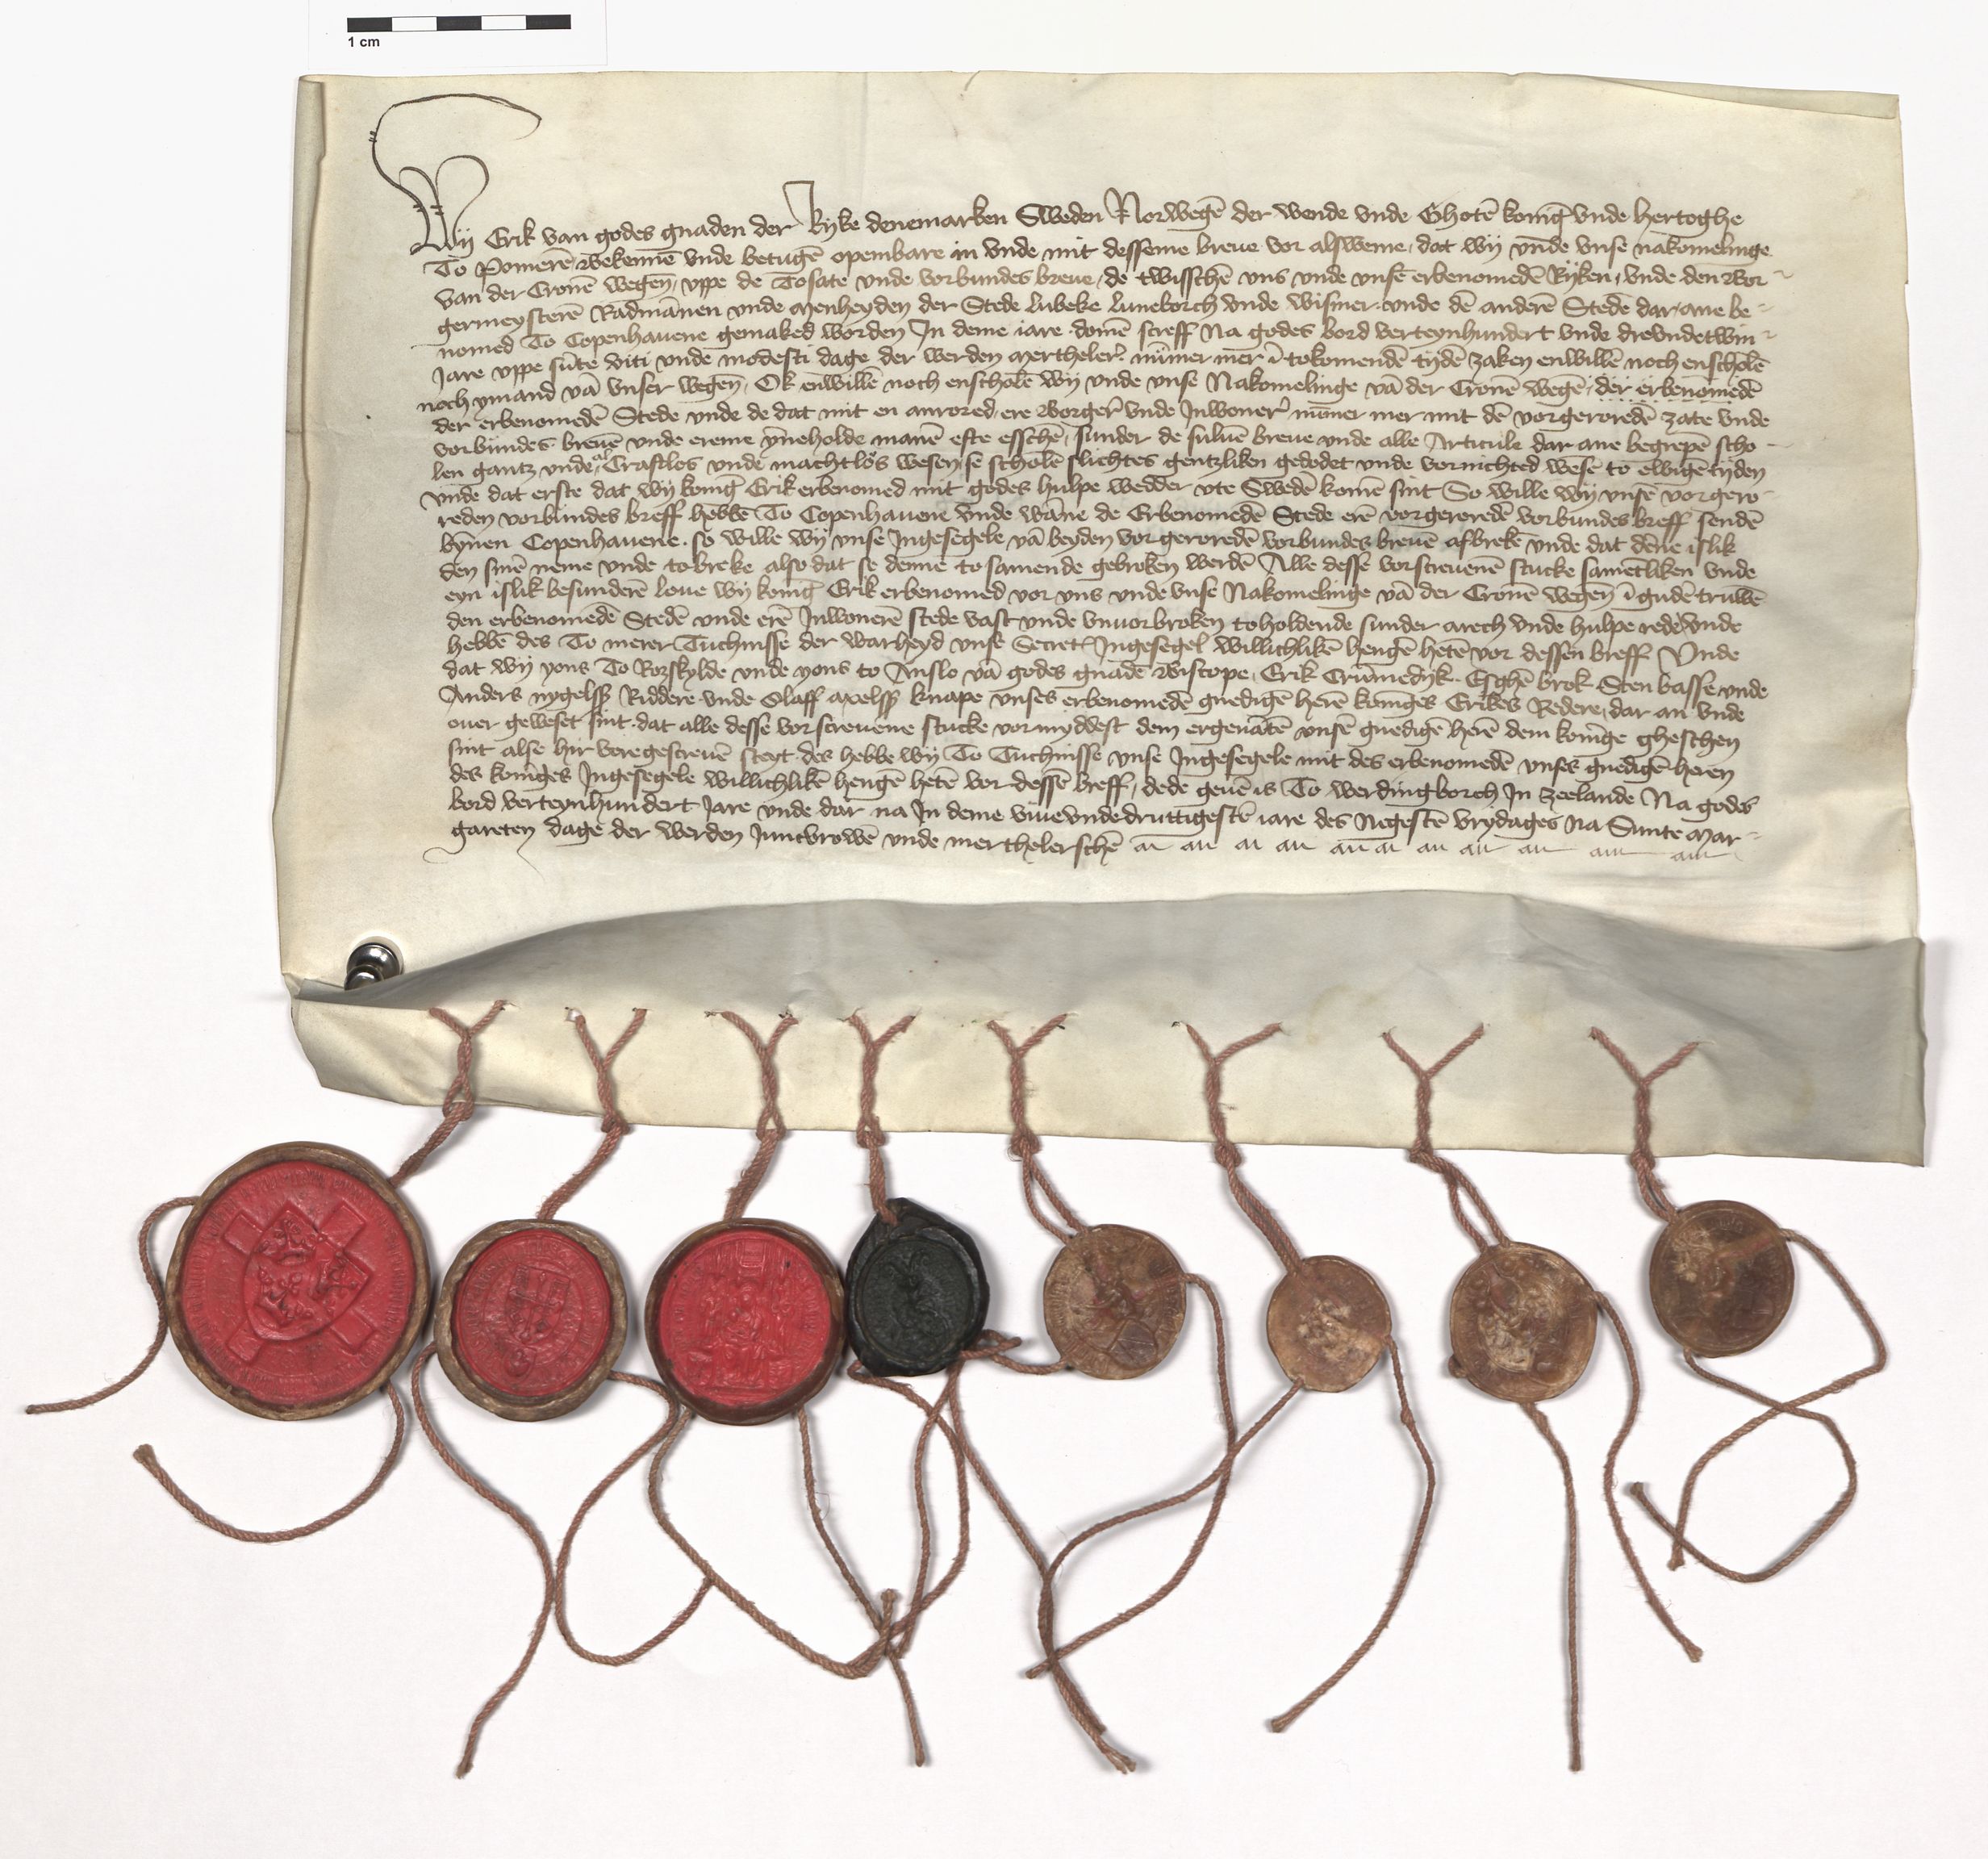 1 cm
Wij Erik van godes gnaden der Ryke denemarken Sweden Norwegē der wende vnde Ghotē konīg vnde hertoghe
To Pomerē, bekennē vnde betugē openbare in vnde mit desseme breue vor alsweme, dat wij vnde vnse nakomelinge
van der Cronē wegen, vppe de Tosate vnde vorbundes breue, de twisschē vns vnde vnsē erbenomedē Ryken, vnde den Bor-
germeysterē Radmānen vnde menheyden der Stede lubeke luneborch vnde wismer vnde dē anderē Stedē dar ane be-
nomed To Copenhauene gemaked worden In deme iare domē screff Na godes bord verteynhundert vnde drevndetwin-
Jare vppe sūte viti vnde modesti dage der werden merthelerˀ nūmer mer ī tokomendē tydē zaken enwillē noch enscholē
noch ymand vā vnser wegen, Ok enwillē noch enscholē wij vnde vnse Nakomelinge vā der Cronē wegē, der erbenomedē
der erbenomedē Stede vnde de dat mit en anrored, ere Borgerˀ vnde Inwonerˀ nūmer mer mit dē vorgeroredē zate vnde
vorbundes breuē vnde ereme ynneholde manē efte esschē, sunder de suluē breue vnde alle Articule dar ane begrepē scho-
len gantz vnde al Craftlos vnde machtlos wesen, se scholē slichtes gentzliken gedodet vnde vornichted wesē to ewigē tyden
vnde dat erste dat wij konīg Erik erbenomed mit godes hulpe wedder vte Swedē komē sint So wille wij vnsē vorgero-
reden vorbundes breff hebbē To Copenhauene vnde wāne de Erbenomedē Stede erē vorgeroredē vorbundes breff sendē
bynnen Copenhauene. so wille wij vnse Ingesegele vā beyden vorgeroredē vorbundes breuē afbrekē vnde dat dēne islik
den sinē neme vnde tobreke also dat se denne tosamende gebroken werdē Alle desse vorscreuenē stucke sametliken vnde
eyn islik besunderē loue wij konīg Erik erbenomed vor vns vnde vnse Nakomelinge vā der Cronē wegen ī gudē truwē
den erbenomedē Stedē vnde erē Inwonerē stede vast vnde vnuorbroken toholdende sunder arech vnde hulpe rede vnde
hebbē des To merer Tuchnisse der warheyd vnse Secret Ingesegel willichlikē hengē hetē vor dessen breff Vnde
dat wij yons To Roskylde vnde yons to Anslo vā godes gnadē Biscope, Erik Crūmedyk. Esghē brok. Sten basse vnde
Anders nygelsß Riddere vnde Olaff axelsß knape vnses erbenomedē gnedigē herē konīges Erikes Redere, dar an vnde
ouer geweset sint. dat alle desse vorscreuene stucke vormyddest dem ergenātē vnsē gnedigē herē dem konīge gheschen
sint alse hir vore gescreuē steyt. des hebbe wij To Tuchnisse vnse Ingesegele mit des erbenomedē vnses gnedigē heren
des konīges Ingesegele willichlikē hengē hetē vor dessē breff, dede geuē is To werdingborch In zeelande Na godes
bord verteynhundert Jare vnde dar na In deme viuevndedruttigestē iare des Negestē vrydages Na Sunte Mar-
gareten dage der werden Juncvrowē vnde merthelerschē